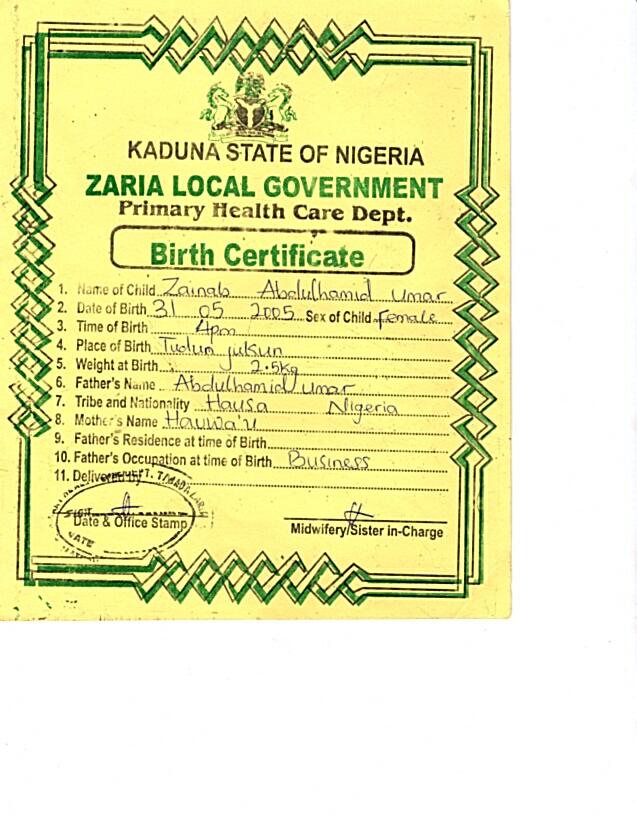 KADUNA STATE OF NIGERIA
ZARIA LOCAL GOVERNMENT
Primary Health Care Dept.
Birth Certificate
1. Name of Child Zainab Abdulhamid Umar
2. Date of Birth 31 05 2005 Sex of Child female
3. Time of Birth 4pm
4. Place of Birth Tudun jukun
5. Weight at Birth 2.5kg
6. Father's Name Abdulhamid Umar
7. Tribe and Nationality Hausa Nigeria
8. Mother's Name Hauwa'u
9. Father's Residence at time of Birth
10. Father's Occupation at time of Birth Business
11. Delivered by
SIGN
Date & Office Stamp
Midwifery/Sister in-Charge
DATE